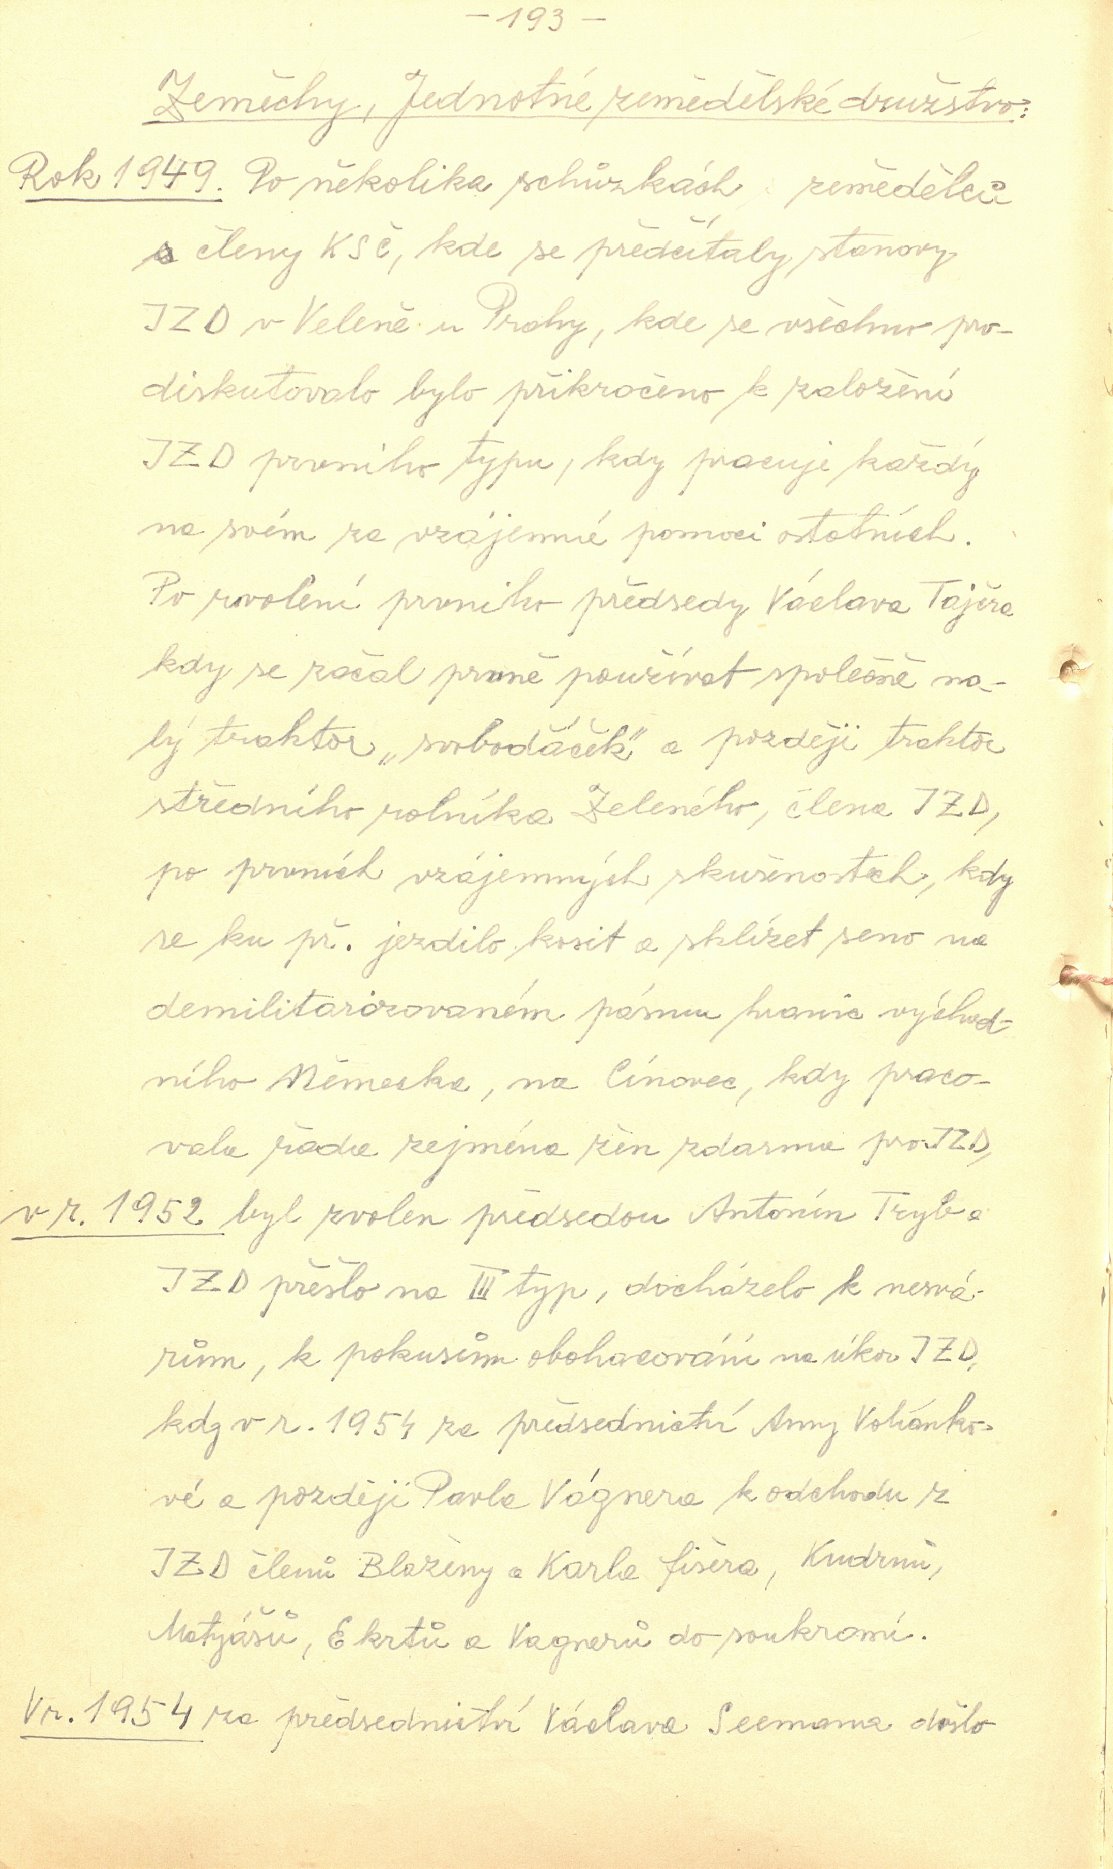 - 193 -
Zeměchy, Jednotné zemědělské družstvo:
Rok 1949. Po několika schůzkách zemědělců
s členy KSČ, kde se předčítaly stanovy
JZD v Veleně u Prahy, kde se všechno pro-
diskutovalo bylo přikročeno k založení
JZD prvního typu, kdy pracuje každý
na svém za vzájemné pomoci ostatních.
Po zvolení prvního předsedy Václava Tajčra
kdy se začal prvně používat společně ma-
lý traktor "svoboďáček" a později traktor
středního rolníka Zeleného, člena JZD,
po prvních vzájemných zkušenostech, kdy
se ku př. jezdilo kosit a sklízet seno na
demilitarizovaném pásmu hranic východ-
ního Německa, na Cínovec, kdy praco-
vala řada zejména žen zdarma pro JZD,
v r. 1952 byl zvolen předsedou Antonín Tryb a
JZD přešlo na III typ, docházelo k nesvá-
rům, k pokusům obohacování na úkor JZD,
kdy v r. 1954 za předsednictví Anny Volánko-
vé a později Pavla Vágnera k odchodu z
JZD členů Blaženy a Karla fišera, Kudrnů,
Matyášů, Ekrtů a Vagnerů do soukromí.
V r. 1954 za předsednictví Václava Seemana došlo